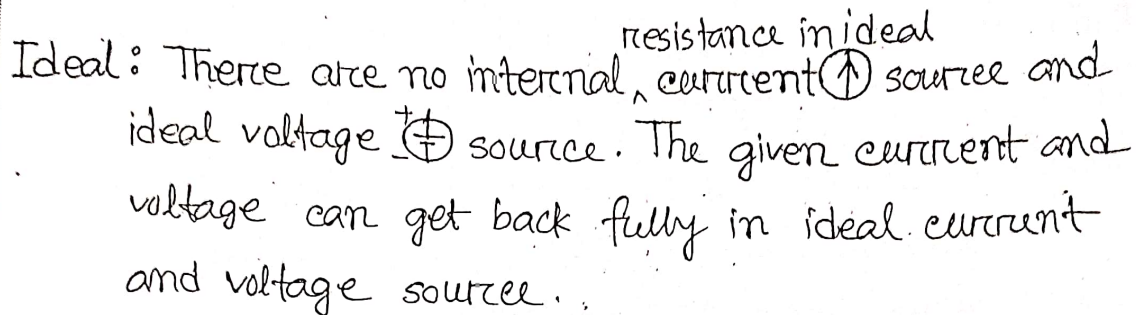 Ideal: There are no internal resistance in ideal current source and
ideal voltage + - source. The given current and
voltage can get back fully in ideal current
and voltage source.